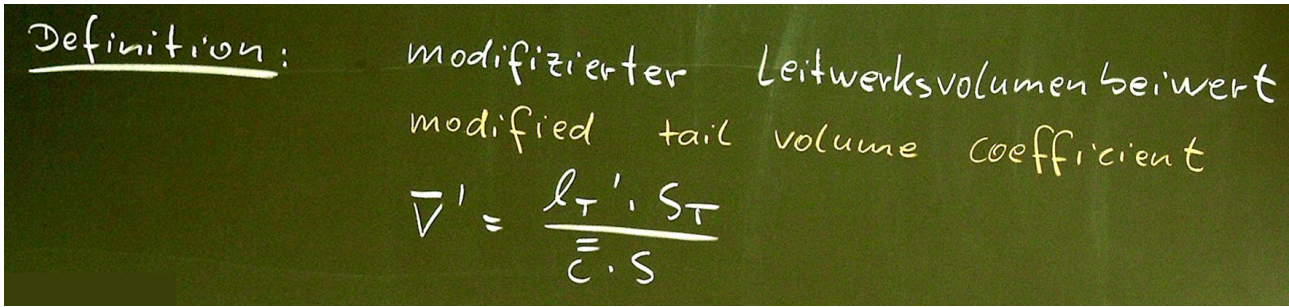 Definition: modifizierter Leitwerksvolumenbeiwert
modified tail volume coefficient
V̅' = (l_T' · S_T) / (c̿ · S)